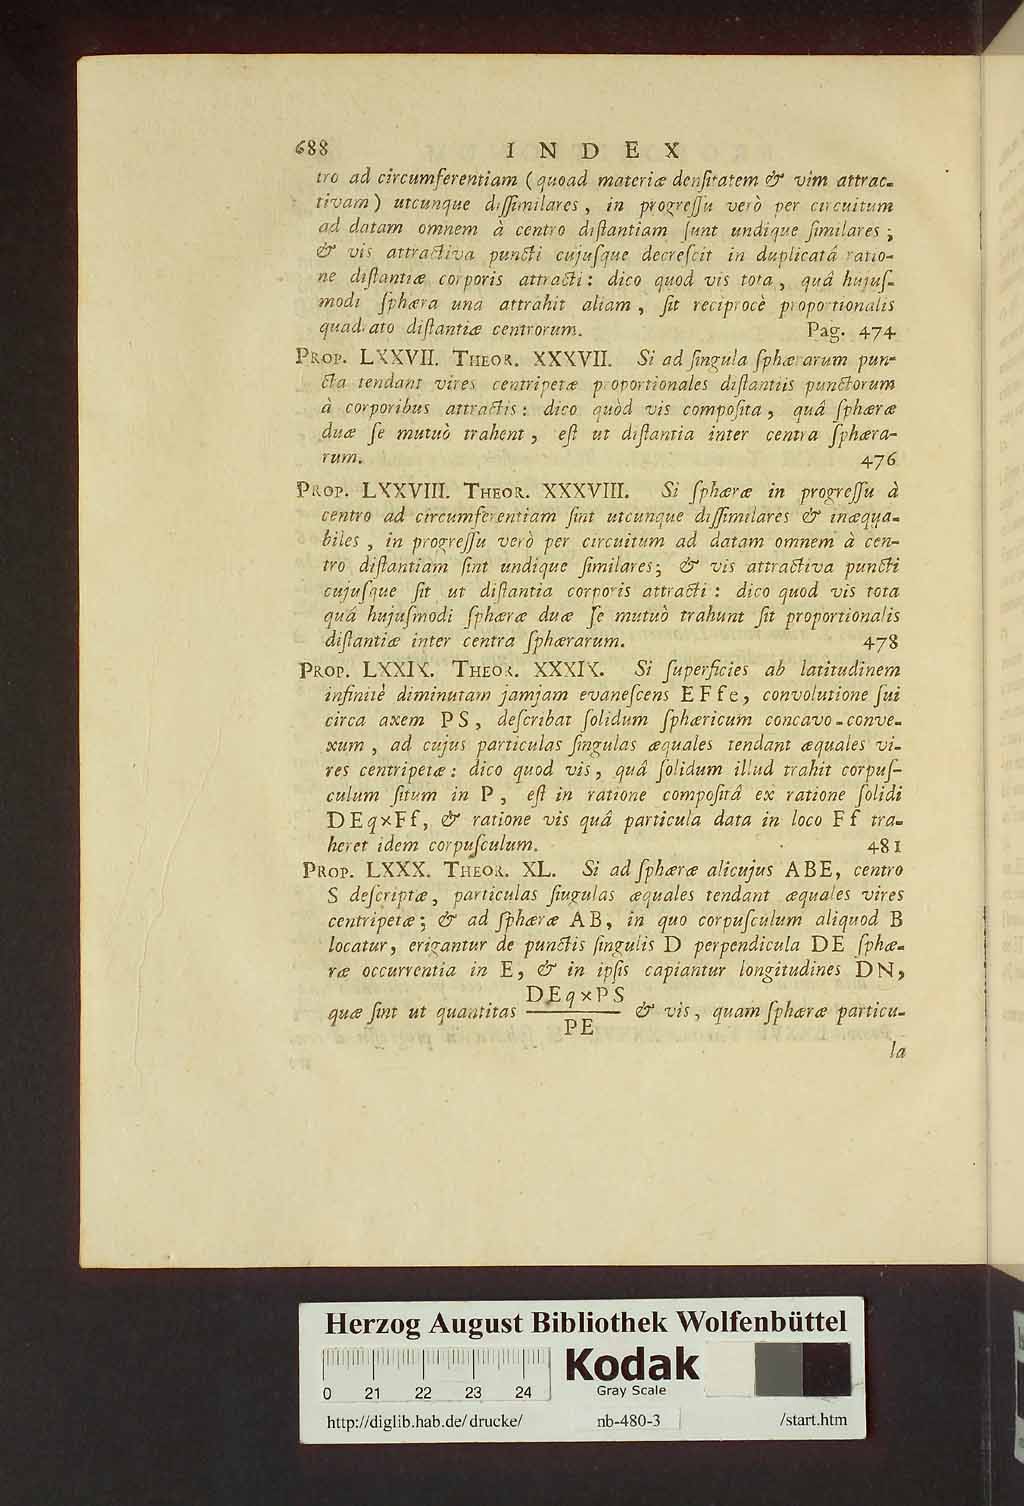 688 INDEX
tro ad circumferentiam (quoad materiæ densitatem & vim attrac-
tivam) utcunque dissimilares, in progressu verò per circuitum
ad datam omnem à centro distantiam sunt undique similares;
& vis attractiva puncti cujusque decrescit in duplicatâ ratio-
ne distantiæ corporis attracti: dico quod vis tota, quâ hujus-
modi sphæra una attrahit aliam, sit reciprocè proportionalis
quadrato distantiæ centrorum. Pag. 474
PROP. LXXVII. THEOR. XXXVII. Si ad singula sphærarum pun-
cta tendant vires centripetæ proportionales distantiis punctorum
à corporibus attractis: dico quòd vis composita, quâ sphæræ
duæ se mutuò trahent, est ut distantia inter centra sphæra-
rum. 476
PROP. LXXVIII. THEOR. XXXVIII. Si sphæræ in progressu à
centro ad circumferentiam sint utcunque dissimilares & inæqua-
biles, in progressu verò per circuitum ad datam omnem à cen-
tro distantiam sint undique similares; & vis attractiva puncti
cujusque sit ut distantia corporis attracti: dico quod vis tota
quâ hujusmodi sphæræ duæ se mutuò trahunt sit proportionalis
distantiæ inter centra sphærarum. 478
PROP. LXXIX. THEOR. XXXIX. Si superficies ab latitudinem
infinitè diminutam jamjam evanescens EFfe, convolutione sui
circa axem PS, describat solidum sphæricum concavo-conve-
xum, ad cujus particulas singulas æquales tendant æquales vi-
res centripetæ: dico quod vis, quâ solidum illud trahit corpus-
culum situm in P, est in ratione compositâ ex ratione solidi
DEq×Ff, & ratione vis quâ particula data in loco Ff tra-
heret idem corpusculum. 481
PROP. LXXX. THEOR. XL. Si ad sphæræ alicujus ABE, centro
S descriptæ, particulas siugulas æquales tendant æquales vires
centripetæ; & ad sphæræ AB, in quo corpusculum aliquod B
locatur, erigantur de punctis singulis D perpendicula DE sphæ-
ræ occurrentia in E, & in ipsis capiantur longitudines DN,
quæ sint ut quantitas DEq×PS / PE & vis, quam sphæræ particu-
la
Herzog August Bibliothek Wolfenbüttel
0 21 22 23 24
Kodak
Gray Scale
http://diglib.hab.de/drucke/ nb-480-3 /start.htm